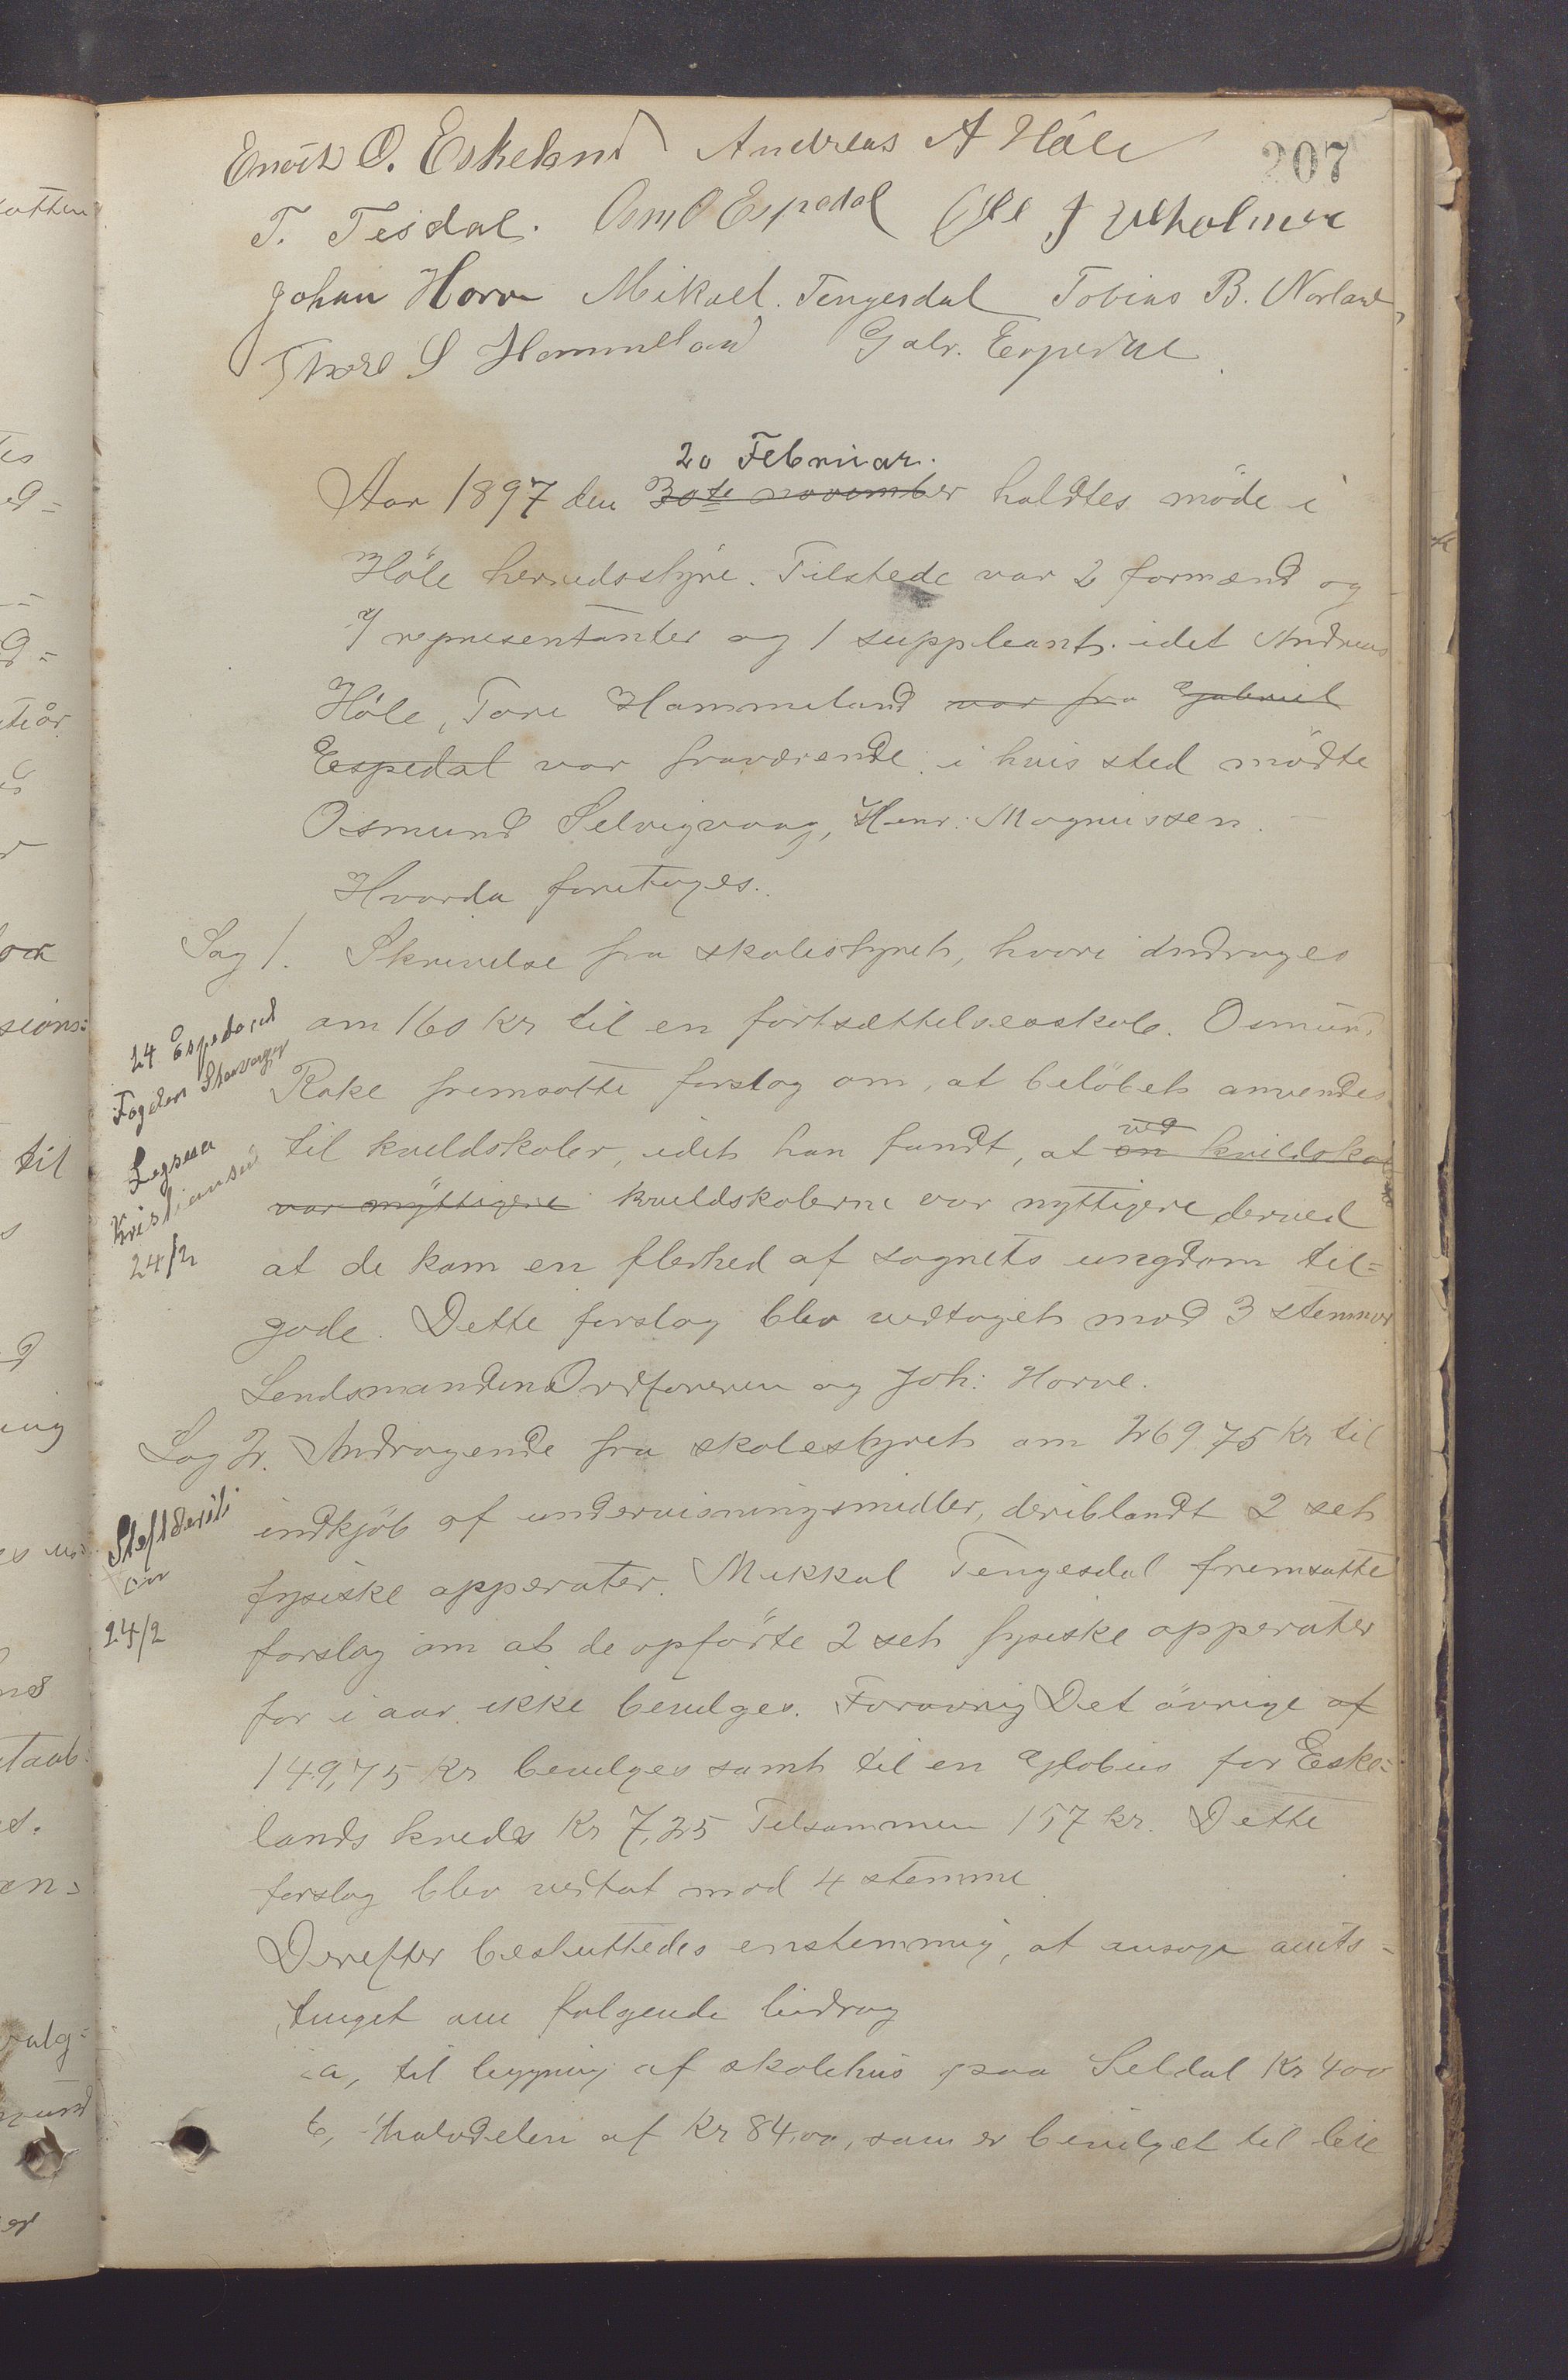 207
Enoch O. Eskeland Andreas A Høle
T. Tesdal. Osm O Espedal Ole J
Johan Horve Mikael. Tengesdal Tobias B. Norland
Thore S Hommeland Gabr. Espedal
20 Februar.
Aar 1897 den 30te november holdtes möde i
Höle herredsstyre. Tilstede var 2 formænd og
7 representanter og 1 suppleant. idet Andreas
Höle, Tore Hammeland var fra Gabriel
Espedal var fraværende i hvis sted mödte
Osmund Selvigvaag, Henr: Magnussen.
Hvorda foretoges.
Sag 1. Skrivelse fra skolestyret, hvori andrages
om 160 Kr til en fortsættelsesskole. Osmund
Rake fremsatte forslag om, at belöbet anvendes
til kveldskoler, idet han fandt, at ved en kveldskole
var nyttigere kveldskolerne var nyttigere derved
at de kom en flerhed af sognets ungdom til=
gode. Dette forslag blev vedtaget mod 3 stemmer
Lendsmanden Ordföreren og Joh: Horve.
24 Espedal
Fogden Stavanger
Kristiansand
24/2
Sag 2. Andragende fra skolestyret om 269 75 Kr til
indkjöb af undervisningsmidler, deriblandt 2 set
fysiske apperater. Mikkal Tengesdal fremsatte
forslag om at de opförte 2 set fysiske apperater
for i aar ikke bevilges. Foravrig Det övrige af
149,75 Kr bevilges samt til en Globus for Eske=
lands kreds Kr 7,25 Tilsammen 157 kr. Dette
forslag blev vedtat mod 4 stemme
24/2
Derefter besluttedes enstemmig, at ansöge amts-
tinget om følgende bidrag
a, til bygning af skolehus paa Seldal Kr 400
b, halvdelen af Kr 84,00, som er bevilget til leie